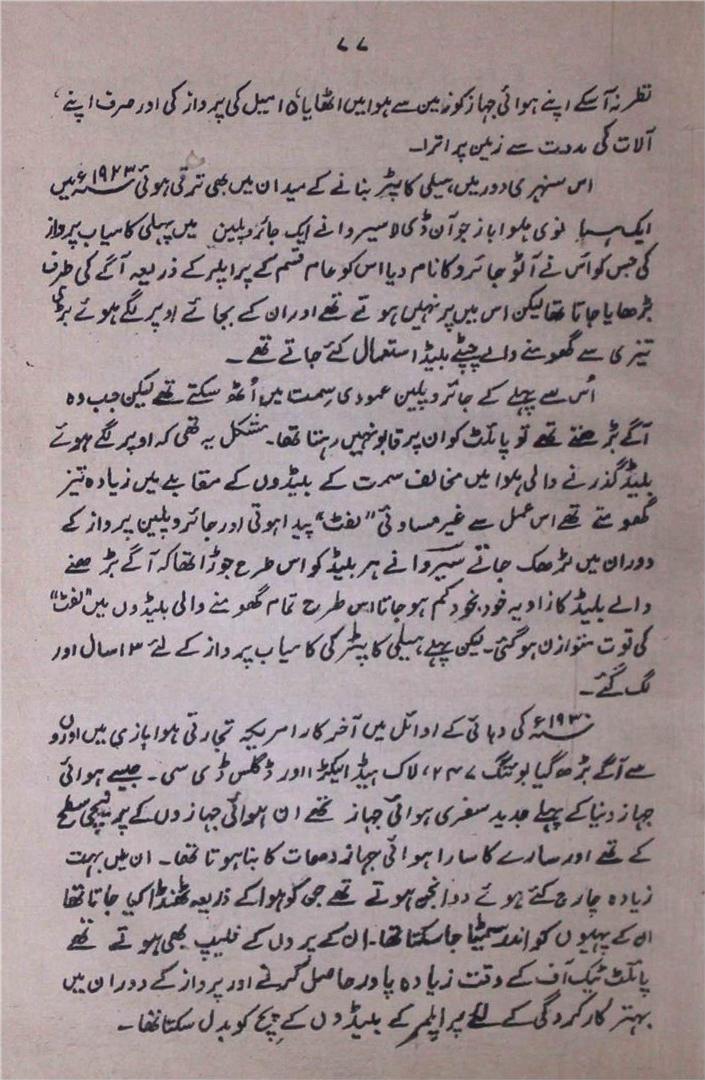 ۷۷
نظر نہ آسکے اپنے ہوائی جہاز کو زمین سے ہوا میں اٹھایا، ۱۵میل کی پرواز کی اور صرف اپنے
آلات کی مدد سے زمین پر اترا۔
اس سنہری دور میں ہیلی کاپٹر بنانے کے میدان میں بھی ترقی ہوئی ۱۹۲۳ء میں
ایک ہوا باز جوآن ڈی لا سیروا نے ایک جائروپلین میں پہلی کامیاب پرواز
کی جس کو اس نے آٹو جائرو کا نام دیا اس کو عام قسم کے پراپلر کے ذریعہ آگے کی طرف
بڑھایا جاتا تھا لیکن اس میں پر نہیں ہوتے تھے اور ان کے بجائے اوپر لگے ہوئے بڑی
تیزی سے گھومنے والے چپٹے بلیڈ استعمال کئے جاتے تھے۔
اُس سے پہلے کے جائروپلین عمودی سمت میں اُٹھ سکتے تھے لیکن جب وہ
آگے بڑھتے تھے تو پائلٹ کو ان پر قابو نہیں رہتا تھا۔ مشکل یہ تھی کہ اوپر لگے ہوئے
بلیڈ گذرنے والی ہوا میں مخالف سمت کے بلیڈوں کے مقابلے میں زیادہ تیز
گھومتے تھے اس عمل سے غیر مساوی "لفٹ" پیدا ہوتی اور جائروپلین پرواز کے
دوران میں لڑھک جاتے سیروا نے ہر بلیڈ کو اس طرح جوڑا تھا کہ آگے بڑھنے
والے بلیڈ کا زاویہ خود بخود کم ہو جاتا اس طرح تمام گھومنے والی بلیڈوں میں "لفٹ"
کی قوت متوازن ہو گئی۔ لیکن پہلے ہیلی کاپٹر کی کامیاب پرواز کے لئے ۱۳ سال اور
لگ گئے۔
۱۹۳۰ء کی دہائی کے اوائل میں آخر کار امریکہ تجارتی ہوا بازی میں اوروں
سے آگے بڑھ گیا بوئنگ ۲۴۷، لاک ہیڈ الیکٹرا اور ڈگلس ڈی سی۔ جیسے ہوائی
جہاز دنیا کے پہلے جدید سفری ہوائی جہاز تھے ان ہوائی جہازوں کے پر نیچی سطح
کے تھے اور سارے کا سارا ہوائی جہاز دھات کا بنا ہوتا تھا۔ ان میں بہت
زیادہ چارج کئے ہوئے دو انجن ہوتے تھے جن کو ہوا کے ذریعہ ٹھنڈا کیا جاتا تھا
ان کے پہیوں کو اندر سمیٹا جا سکتا تھا۔ ان کے پروں کے فلیپ بھی ہوتے تھے
پائلٹ ٹیک آف کے وقت زیادہ پاور حاصل کرنے اور پرواز کے دوران میں
بہتر کارکردگی کے لئے پراپلر کے بلیڈوں کے پچ کو بدل سکتا تھا۔